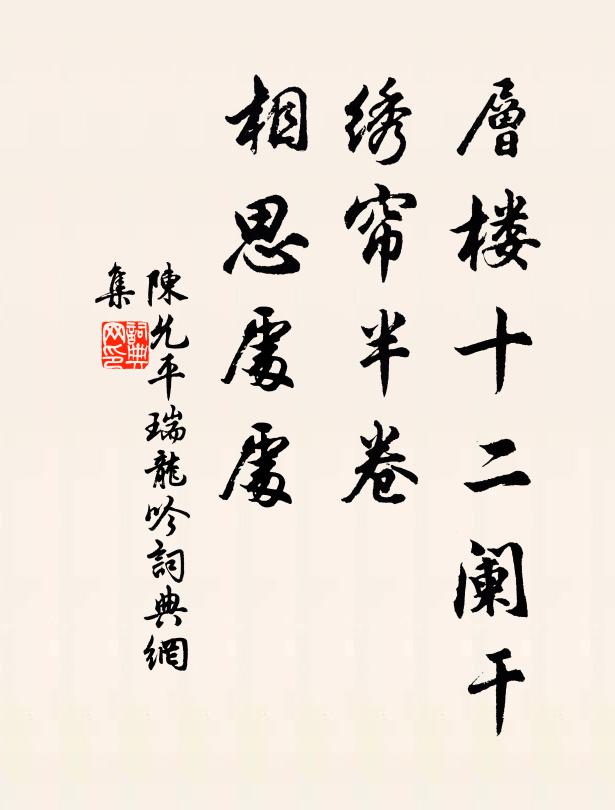 層楼十二阑干
绣帘半卷
相思處處
陳允平瑞龍吟詞典網
集
詞典网印